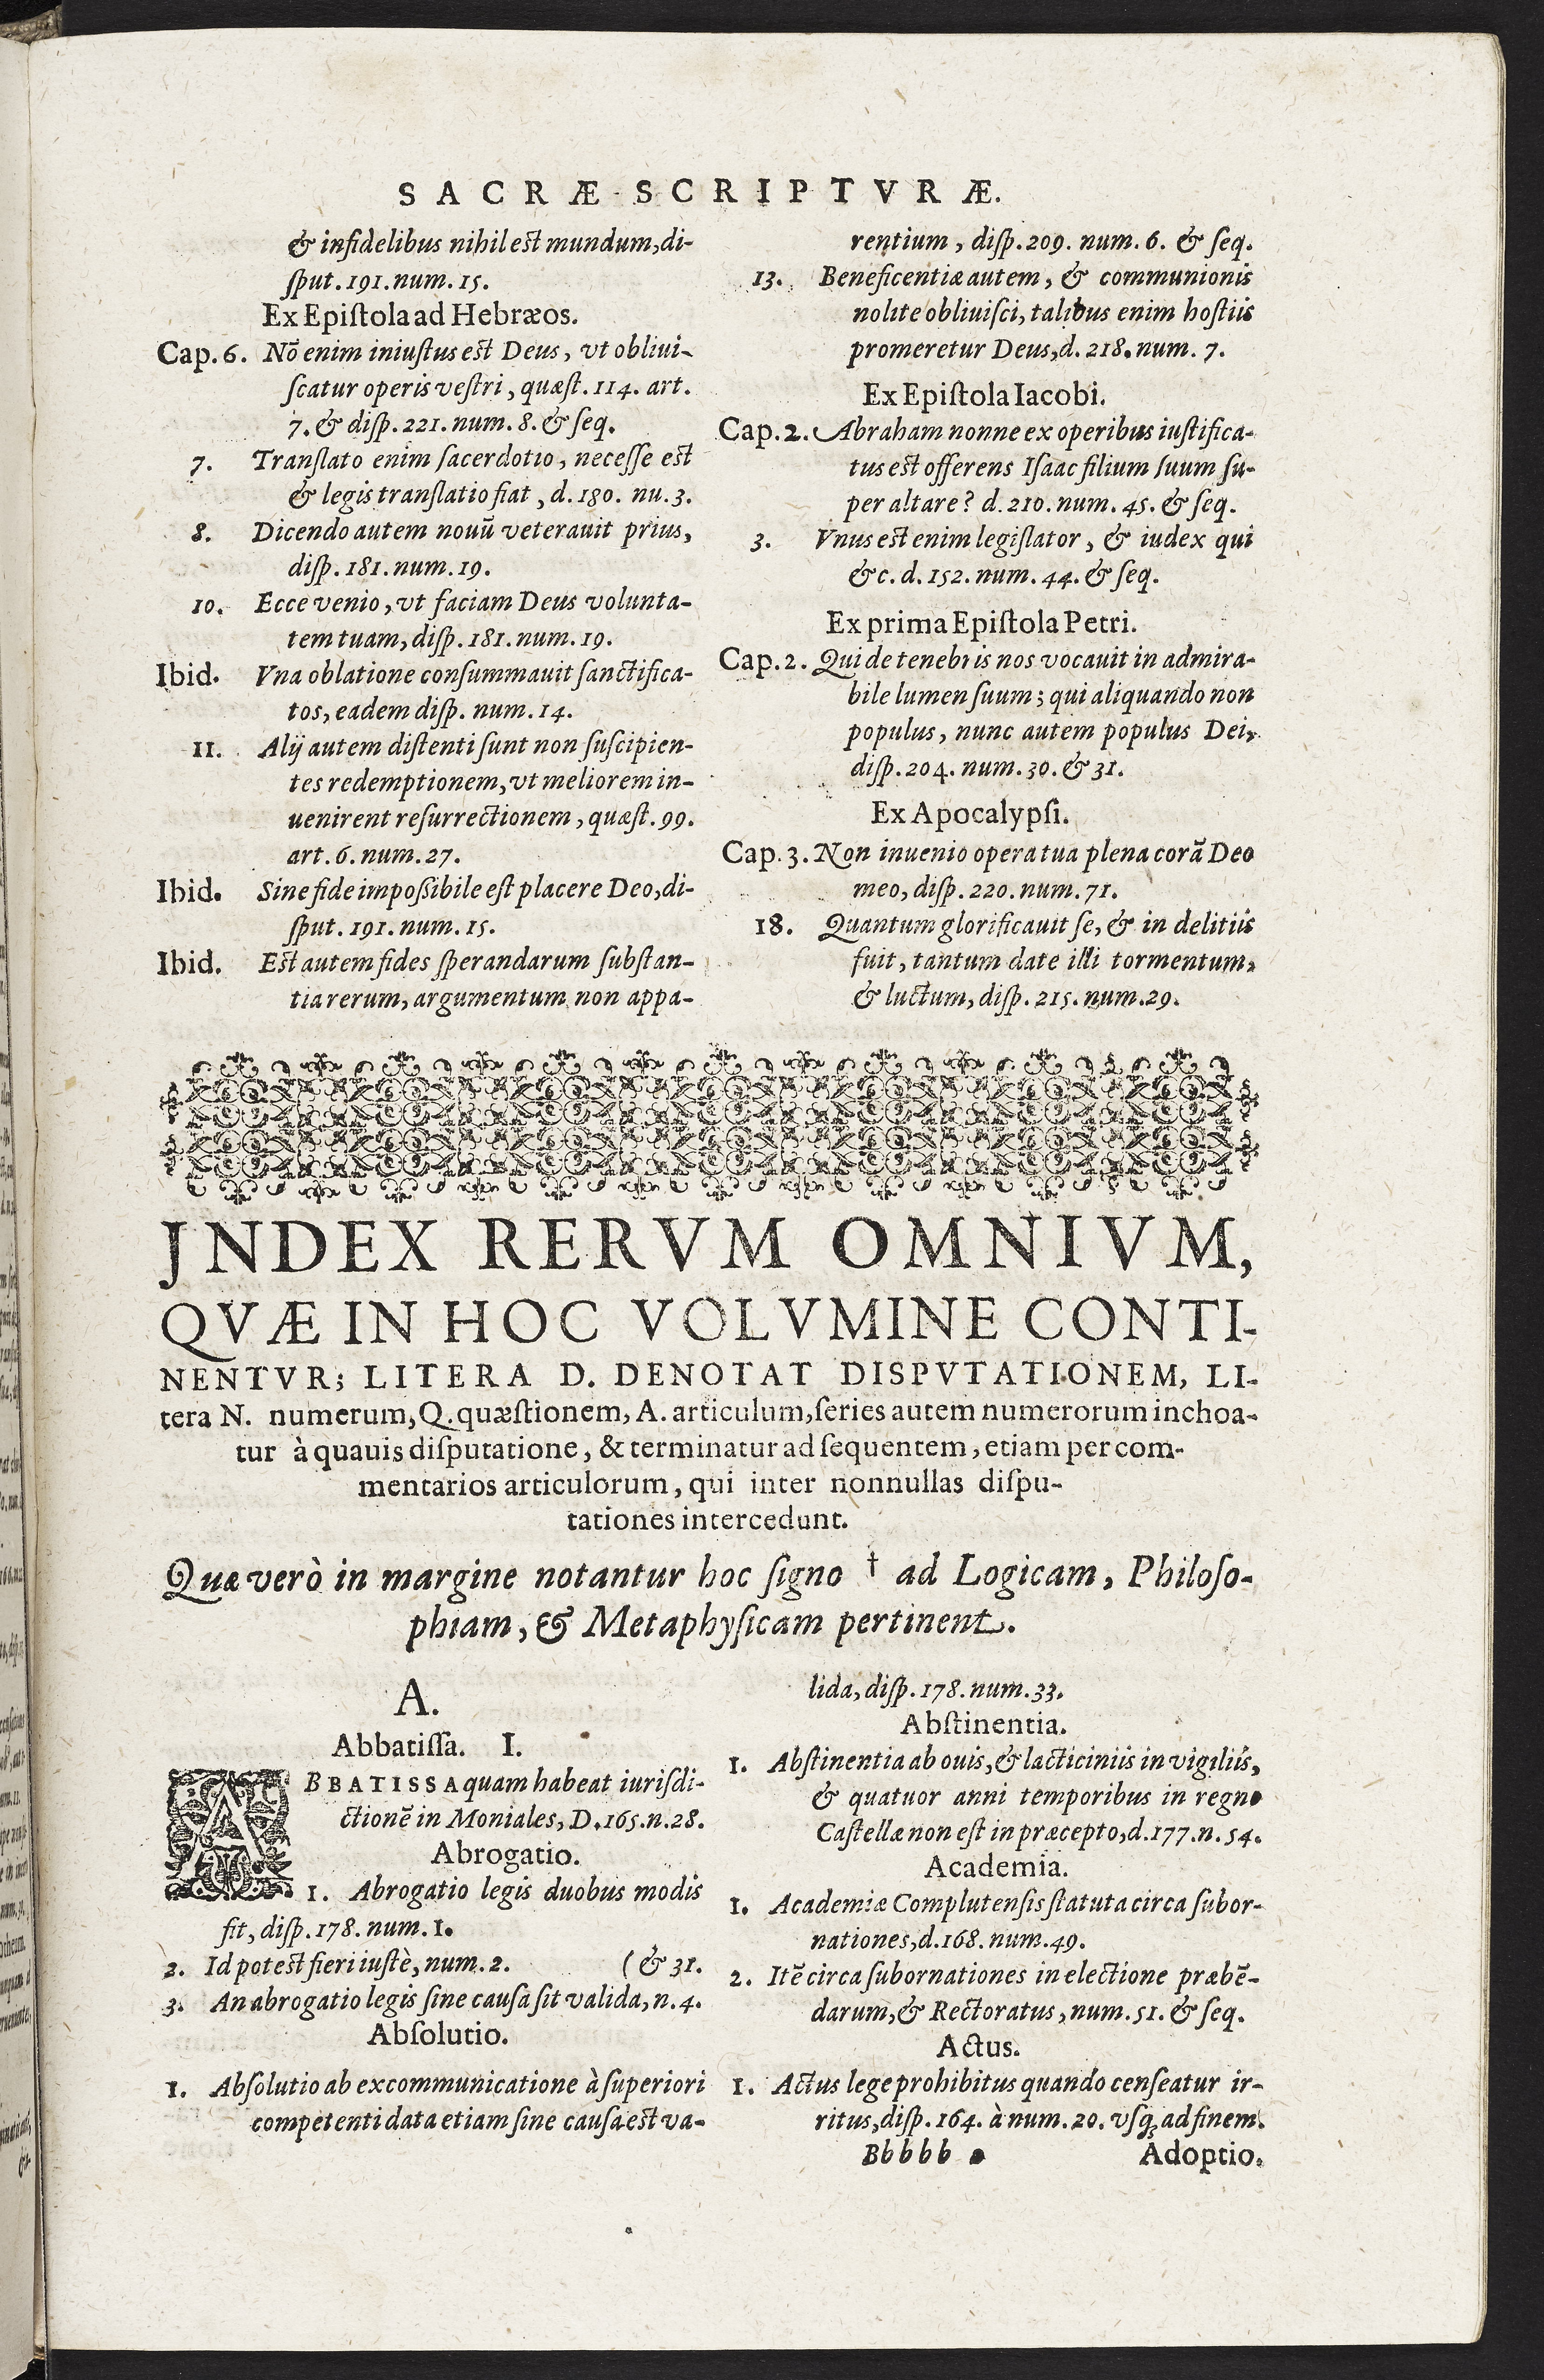 SACRÆ SCRIPTVRÆ.
& infidelibus nihil est mundum, di-
sput. 191. num. 15.
Ex Epistola ad Hebræos.
Cap. 6. Nõ enim iniustus est Deus, vt obliui-
scatur operis vestri, quæst. 114. art.
7. & disp. 221. num. 8. & seq.
7. Translato enim sacerdotio, necesse est
& legis translatio fiat, d. 180. nu. 3.
8. Dicendo autem nouũ veterauit prius,
disp. 181. num. 19.
10. Ecce venio, vt faciam Deus volunta-
tem tuam, disp. 181. num. 19.
Ibid. Vna oblatione consummauit sanctifica-
tos, eadem disp. num. 14.
11. Alij autem distenti sunt non suscipien-
tes redemptionem, vt meliorem in-
uenirent resurrectionem, quæst. 99.
art. 6. num. 27.
Ibid. Sine fide impossibile est placere Deo, di-
sput. 191. num. 15.
Ibid. Est autem fides sperandarum substan-
tia rerum, argumentum non appa-
rentium, disp. 209. num. 6. & seq.
13. Beneficentiæ autem, & communionis
nolite obliuisci, talibus enim hostiis
promeretur Deus, d. 218. num. 7.
Ex Epistola Iacobi.
Cap. 2. Abraham nonne ex operibus iustifica-
tus est offerens Isaac filium suum su-
per altare? d. 210. num. 45. & seq.
3. Vnus est enim legislator, & iudex qui
&c. d. 152. num. 44. & seq.
Ex prima Epistola Petri.
Cap. 2. Qui de tenebris nos vocauit in admira-
bile lumen suum; qui aliquando non
populus, nunc autem populus Dei,
disp. 204. num. 30. & 31.
Ex Apocalypsi.
Cap. 3. Non inuenio opera tua plena corã Deo
meo, disp. 220. num. 71.
18. Quantum glorificauit se, & in delitiis
fuit, tantum date illi tormentum,
& luctum, disp. 215. num. 29.
JNDEX RERVM OMNIVM,
QVÆ IN HOC VOLVMINE CONTI-
NENTVR; LITERA D. DENOTAT DISPVTATIONEM, LI-
tera N. numerum, Q. quæstionem, A. articulum, series autem numerorum inchoa-
tur à quauis disputatione, & terminatur ad sequentem, etiam per com-
mentarios articulorum, qui inter nonnullas dispu-
tationes intercedunt.
Quæ verò in margine notantur hoc signo † ad Logicam, Philoso-
phiam, & Metaphysicam pertinent.
A.
Abbatissa. I.
ABBATISSA quam habeat iurisdi-
ctionẽ in Moniales, D. 165. n. 28.
Abrogatio.
1. Abrogatio legis duobus modis
fit, disp. 178. num. 1.
2. Id potest fieri iustè, num. 2. (& 31.
3. An abrogatio legis sine causa sit valida, n. 4.
Absolutio.
1. Absolutio ab excommunicatione à superiori
competenti data etiam sine causa est va-
lida, disp. 178. num. 33.
Abstinentia.
1. Abstinentia ab ouis, & lacticiniis in vigiliis,
& quatuor anni temporibus in regno
Castellæ non est in præcepto, d. 177. n. 54.
Academia.
1. Academiæ Complutensis statuta circa subor-
nationes, d. 168. num. 49.
2. Itẽ circa subornationes in electione præbẽ-
darum, & Rectoratus, num. 51. & seq.
Actus.
1. Actus lege prohibitus quando censeatur ir-
ritus, disp. 164. à num. 20. vsq; ad finem.
Bbbbb Adoptio.